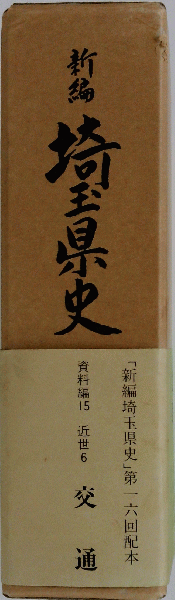 新編
埼玉県史
「新編埼玉県史」第一六回配本
資料編15 近世6 交通